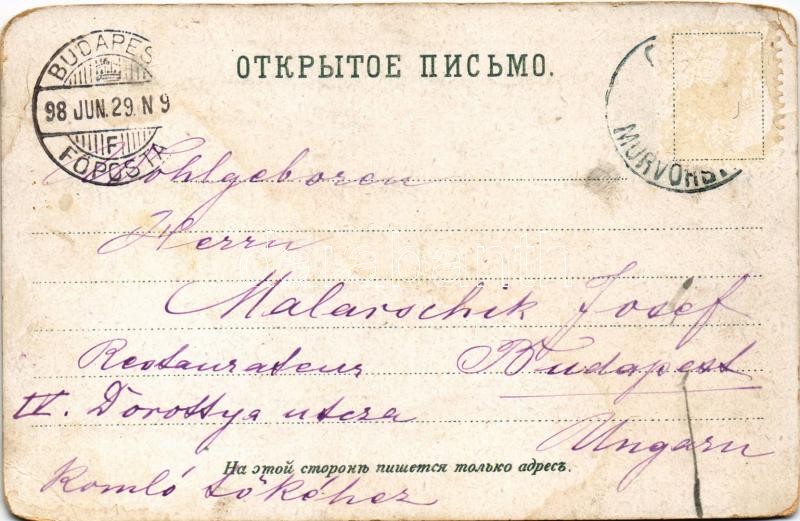 ОТКРЫТОЕ ПИСЬМО.
BUDAPEST
98 JUN. 29. N 9
F
FŐPOSTA
MURVORST
Wohlgeboren
Herrn
Malarschik Josef
Restaurateur Budapest
IV. Dorottya utcza
Ungarn
На этой сторонѣ пишется только адресъ.
Komló tőkéhez